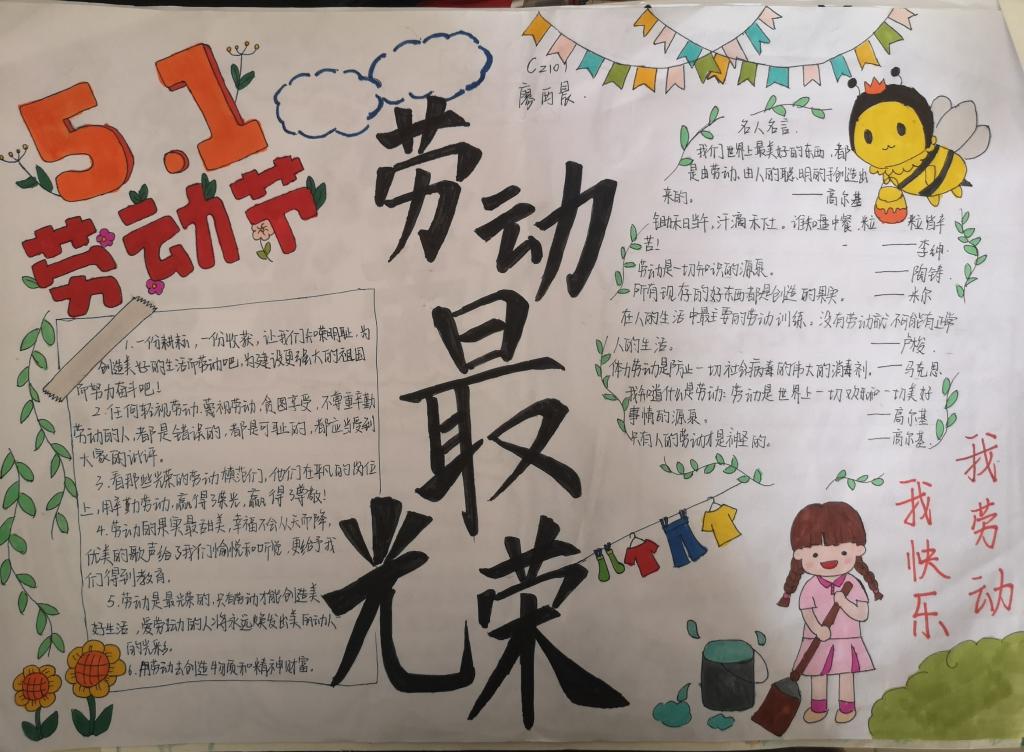 5.1
劳动节
劳动
最
光荣
C2101
1.一份耕耘,一份收获,让我们知荣明耻,为
创造美好的生活而劳动吧,为建设更强大的祖国
而努力奋斗吧!
2.任何轻视劳动、蔑视劳动,贪图享受,不尊重辛勤
劳动的人,都是错误的,都是可耻的,都应当受到
大家的批评。
3.看那些光荣的劳动模范们,他们在平凡的岗位
上,用辛勤劳动,赢得了荣光,赢得了尊敬!
4.劳动的果实最甜美,幸福不会从天而降,
优美的歌声给了我们愉悦和听觉,更给予我
们得到教育。
5.劳动是最光荣的,只有劳动才能创造美
好生活,爱劳动的人将永远焕发出美丽动人
的光彩。
6.用劳动去创造物质和精神财富。
名人名言.
我们世界上最美好的东西,都
是由劳动、由人的聪明的手创造出
来的。 ——高尔基
锄禾日当午,汗滴禾下土。谁知盘中餐,粒粒皆辛
苦! ——李绅
劳动是一切知识的源泉。 ——陶铸
所有现存的好东西都是创造的果实。 ——米尔
在人的生活中最主要的劳动训练。没有劳动就不可能有正常
人的生活。 ——卢梭
体力劳动是防止一切社会病毒的伟大的消毒剂。——马克思
我知道什么是劳动:劳动是世界上一切欢乐和一切美好
事情的源泉。 ——高尔基
只有人的劳动才是神圣的。 ——高尔基
我劳动
我快乐